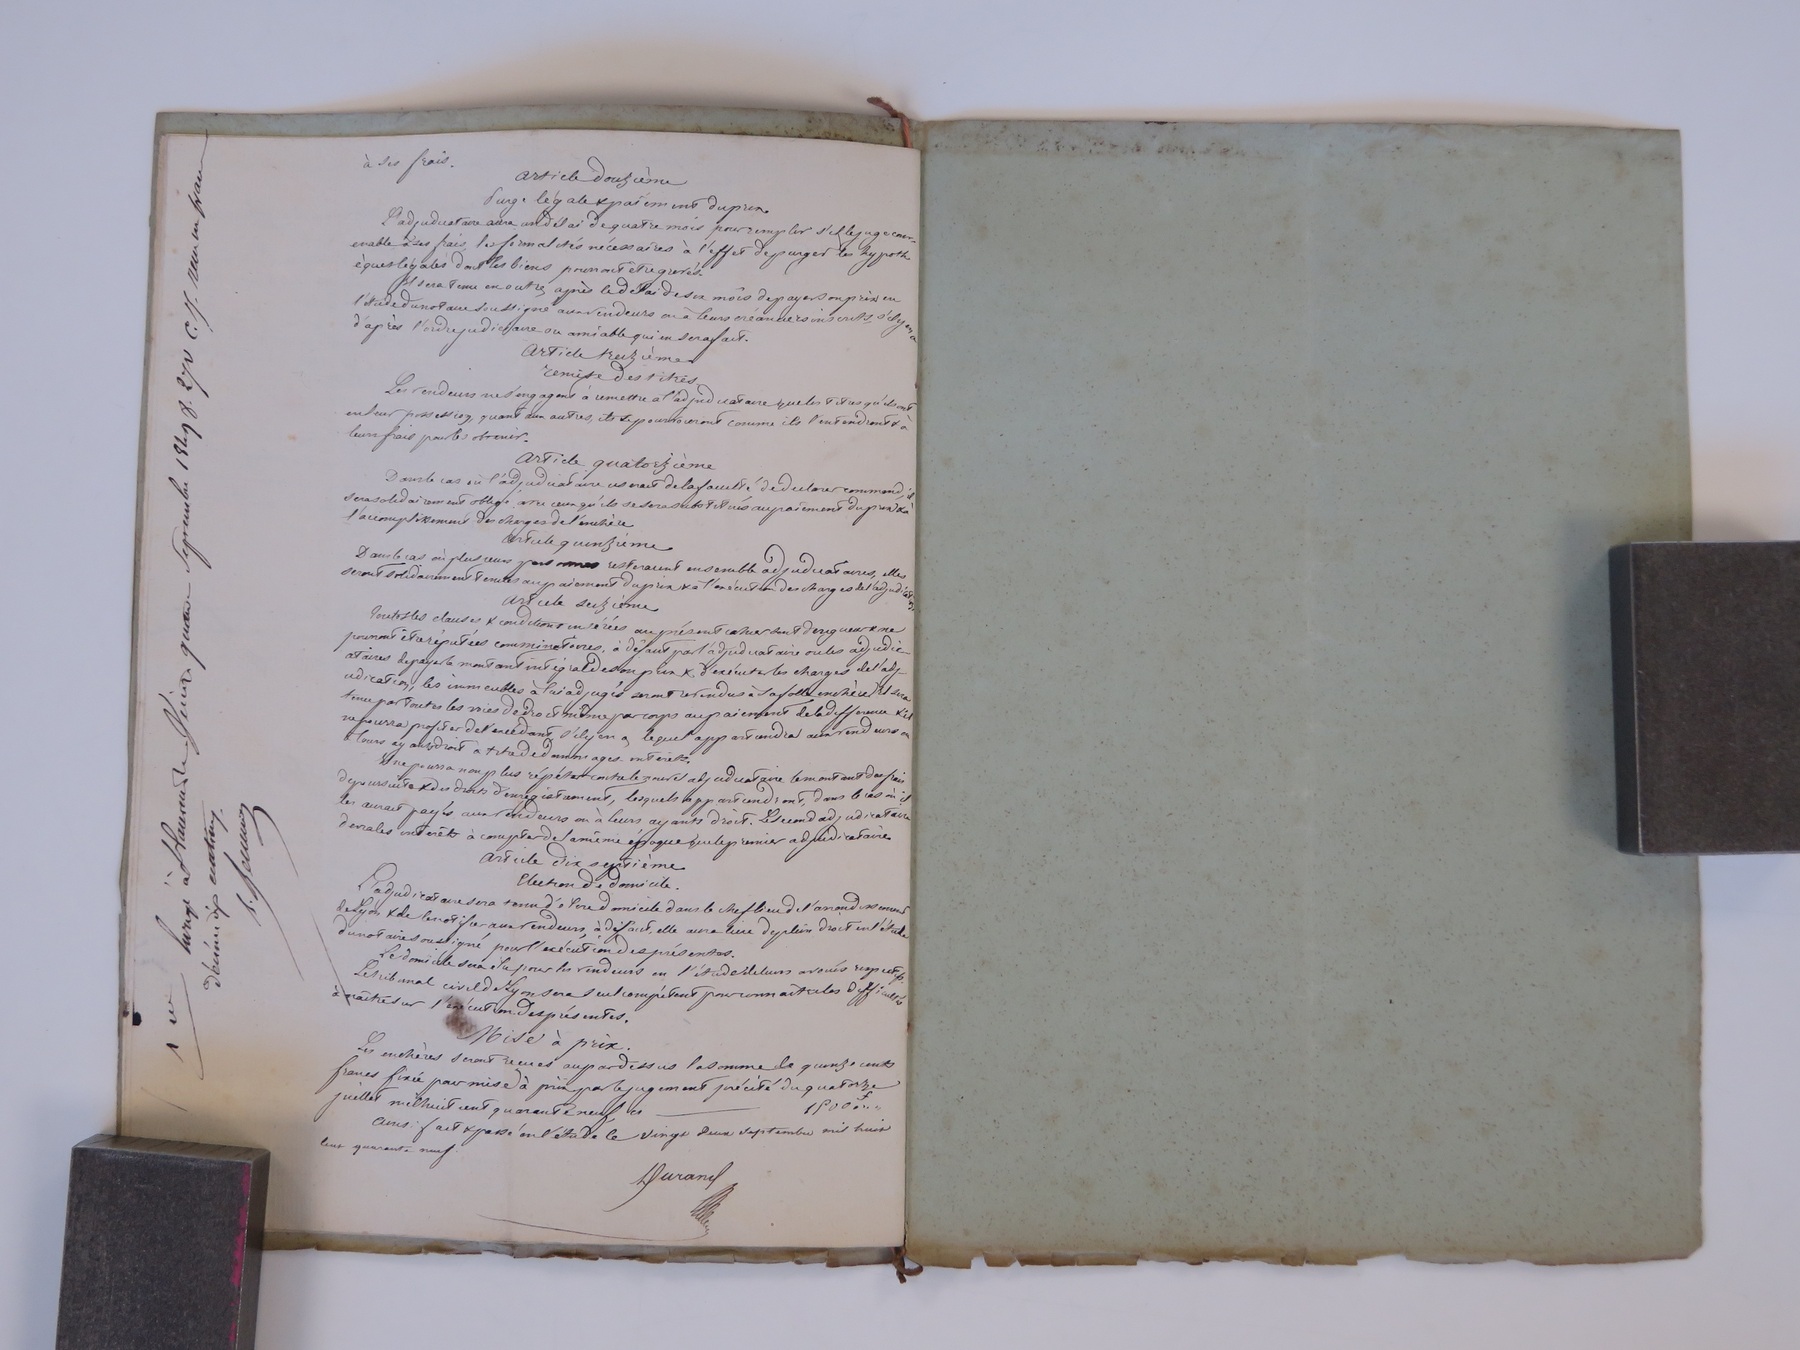 à ses frais.
Article douzième
Purge légale & paiement du prix.
L'adjudicataire aura un délai de quatre mois pour remplir s'il le juge conv-
enable à ses frais, les formalités nécessaires à l'effet de purger les hypoth-
èques légales dont les biens pourront être grevés.
Il sera tenu en outre, après le délai de six mois de payer son prix en
l'étude du notaire soussigné aux vendeurs ou à leurs créanciers inscrits, s'il y en a
d'après l'ordre judiciaire ou amiable qui en sera fait.
Article treizième
remise des titres
Les vendeurs ne s'engagent à remettre à l'adjudicataire que les titres qu'ils ont
en leur possession, quant aux autres, ils se pourvoiront comme ils l'entendront & à
leurs frais pour les obtenir.
Article quatorzième
Dans le cas où l'adjudicataire userait de la faculté de déclarer command, il
sera solidairement obligé avec ceux qu'il se sera substitués au paiement du prix & à
l'accomplissement des charges de l'enchère
Article quinzième
Dans le cas où plusieurs personnes resteraient ensemble adjudicataires, elles
seront solidairement tenues au paiement du prix & à l'exécution des charges de l'adjudication
Article seizième
Toutes les clauses & conditions insérées au présent cahier sont de rigueur & ne
pourront être réputées comminatoires, à défaut par l'adjudicataire ou les adjudic-
ataires de payer le montant intégral de son prix & d'exécuter les charges de l'adj-
udication, les immeubles à lui adjugés seront revendus à sa folle enchère, il sera
tenu par toutes les voies de droit même par corps au paiement de la différence & il
ne pourra profiter de l'excédant, s'il y en a, lequel appartiendra aux vendeurs ou
à leurs ayants droit à titre de dommages-intérêts.
Il ne pourra non plus répéter contre le nouvel adjudicataire le montant des frais
de poursuite & des droits d'enregistrement, lesquels appartiendront, dans le cas où il
les aurait payés, aux vendeurs ou à leurs ayants droit. Le second adjudicataire
devra les intérêts à compter de la même époque que le premier adjudicataire
Article dix septième
Election de domicile.
L'adjudicataire sera tenu d'élire domicile dans le chef lieu de l'arrondissement
de Lyon & de le notifier aux vendeurs, à défaut, elle aura lieu de plein droit en l'étude
du notaire soussigné pour l'exécution des présentes.
Le domicile sera élu pour les vendeurs en l'étude de leurs avoués respectifs.
Le tribunal civil de Lyon sera seul compétent pour connaître les difficultés
à naître sur l'exécution des présentes.
Mise à prix.
Les enchères seront reçues au par dessus la somme de quinze cents
francs fixée pour mise à prix par le jugement précité du quatorze
juillet mil huit cent quarante neuf, ci — 1500 f
Ainsi fait & passé en l'étude le vingt deux septembre mil huit
cent quarante neuf.
Durand
vingt quatre septembre 1849